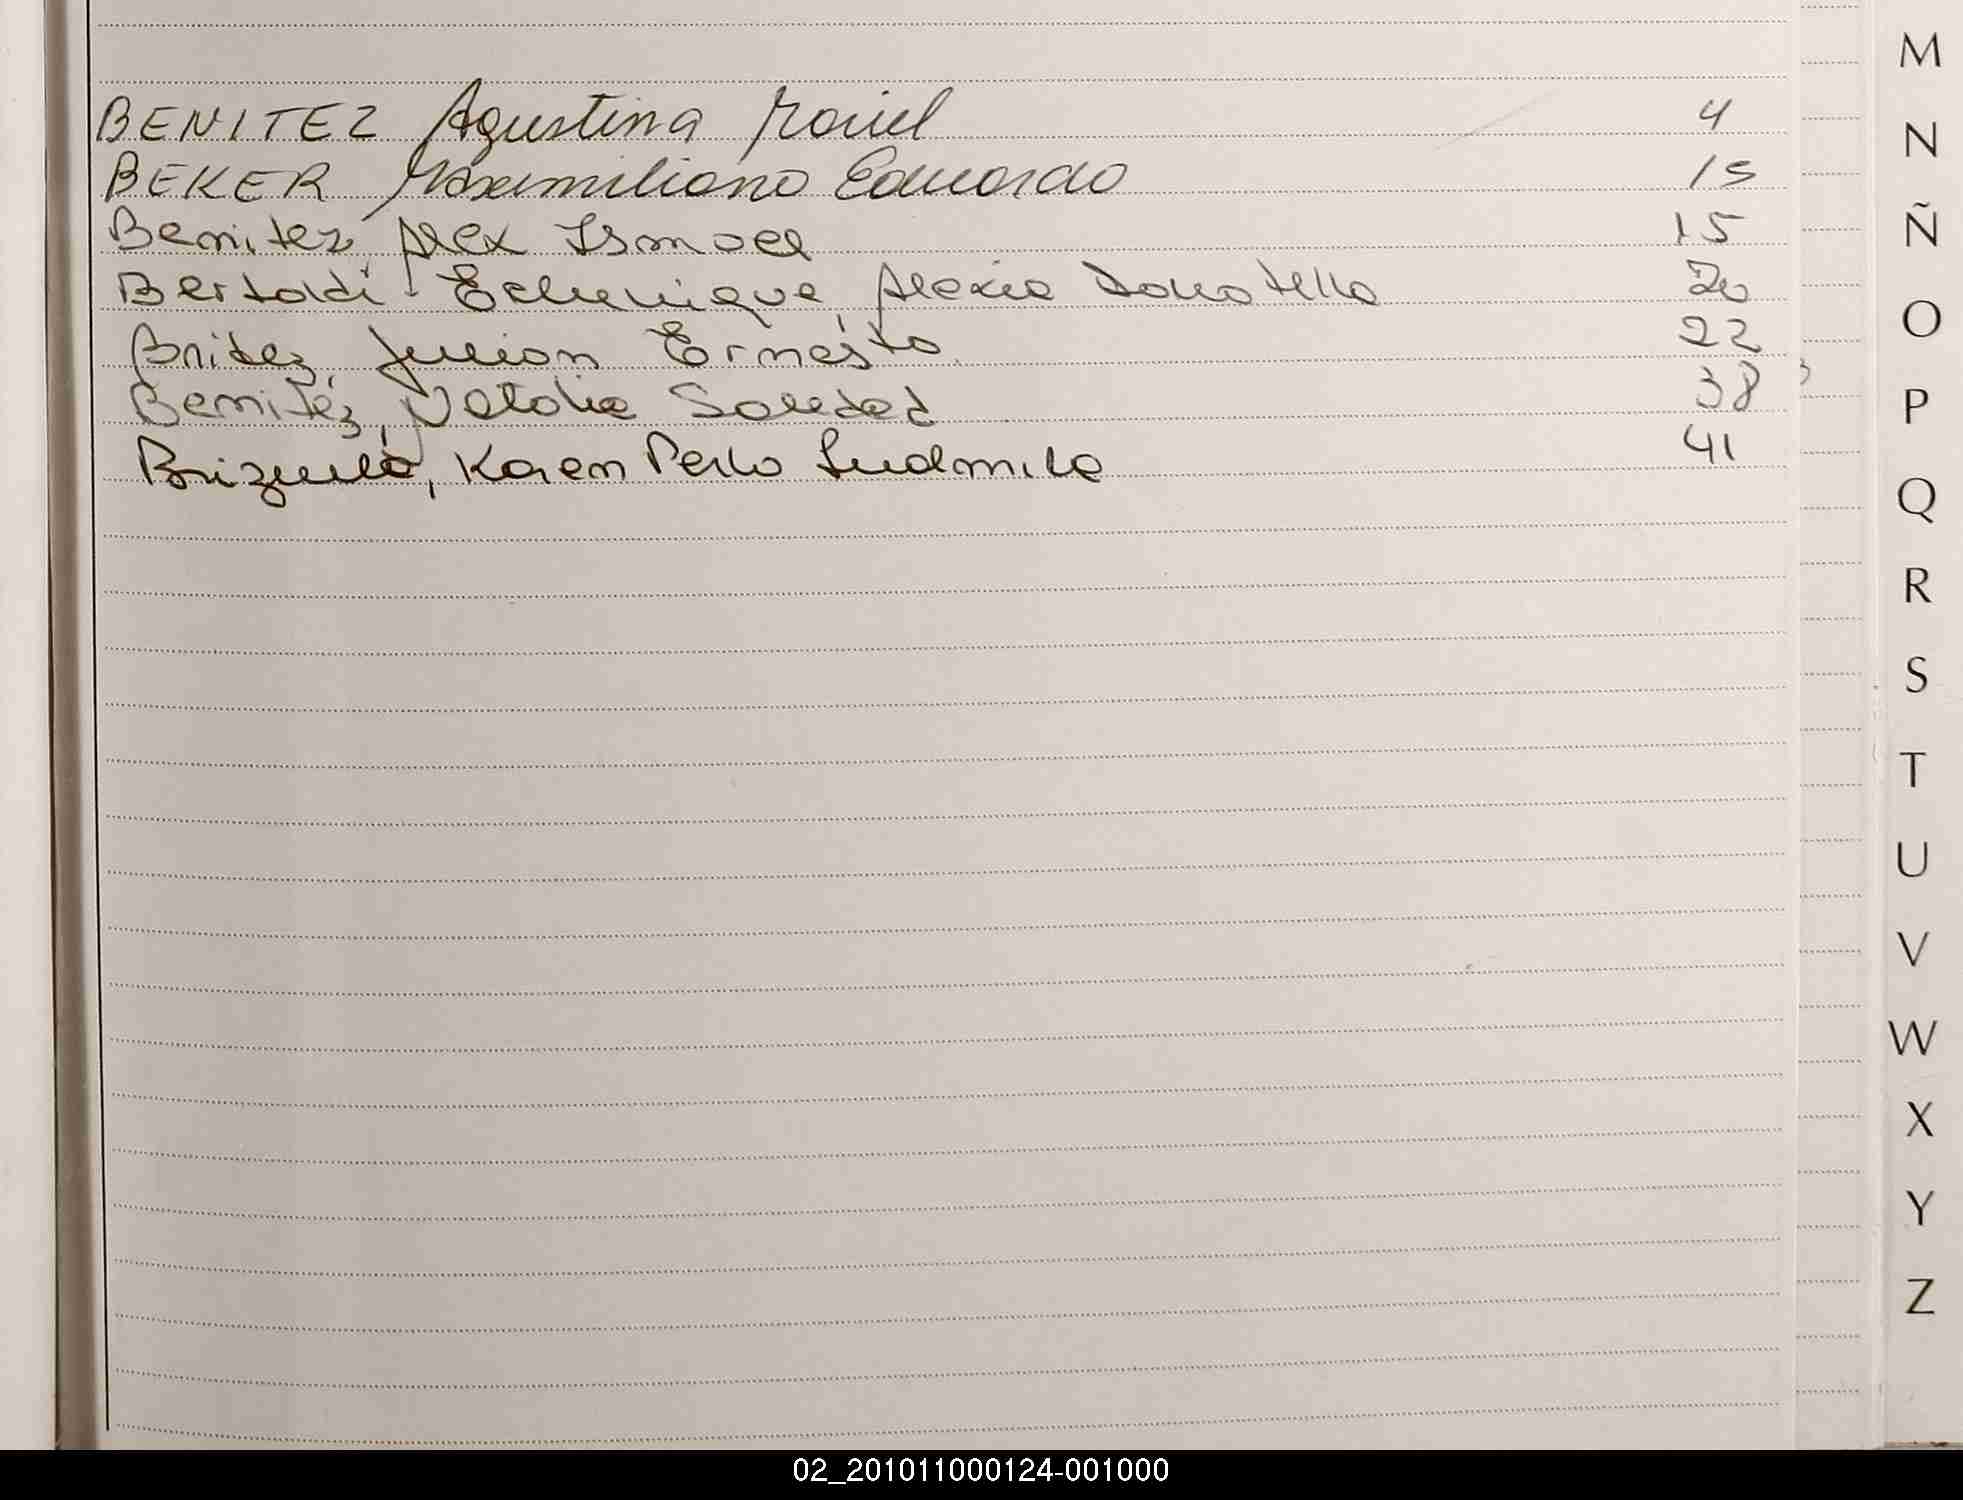 BENITEZ Agustina Mariel 4
BEKER Maximiliano Eduardo 15
Benitez, Alex Ismael 15
Bertoldi - Echenique, Alexia Donatella 20
Britez, Julian Ernesto 22
Benitez, Natalia Soledad 38
Brizuela, Karen Perla Ludmila 41
M
N
Ñ
O
P
Q
R
S
T
U
V
W
X
Y
Z
02_201011000124-001000